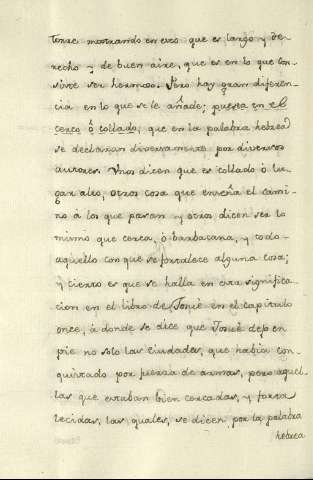 torre mostrando en esto que es largo y de-
recho y de buen aire, que es en lo que con-
siste ser hermoso. Pero hay gran diferen-
cia en lo que se le añade; puesta en el
cerco ô collado, que en la palabra hebrea
se declaran diversamente por diversos
autores. Unos dicen que es collado ô lu-
gar alto, otros cosa que enseña el cami-
no á los que pasan y otros dicen ser lo
mismo que cerca, ô barbacana, y todo
aquello con que se fortalece alguna cosa;
y cierto es que se halla en esta significa-
cion en el libro de Josué en el capitulo
once, á donde se dice que Josué dejo en
pie no solo las ciudades, que habia con-
quistado por fuerza de armas, pero aquel-
las que estaban bien cercadas, y forta
lecidas, las quales, se dicen por la palabra
hebrea